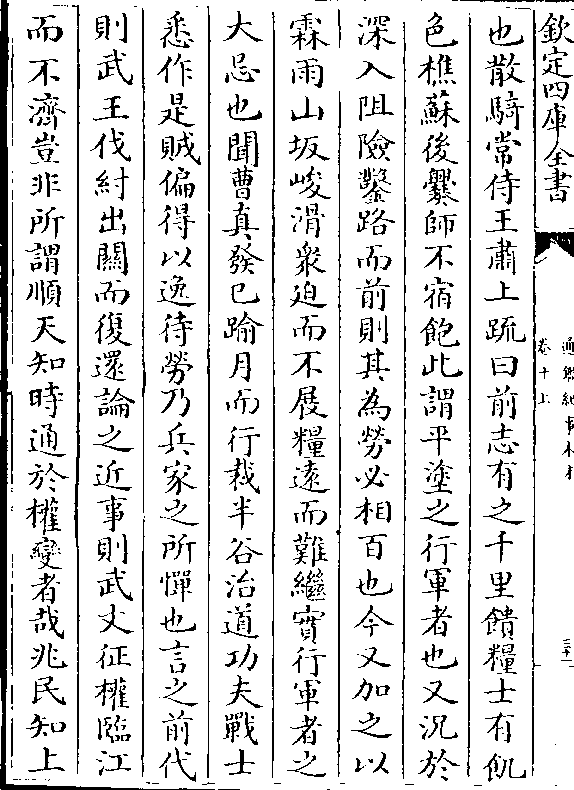 欽定四庫全書
通鑑紀事本末
卷十上
也散騎常侍王肅上疏曰前志有之千里饋糧士有飢
色樵蘇後爨師不宿飽此謂平塗之行軍者也又況於
深入阻險鑿路而前則其為勞必相百也今又加之以
霖雨山坂峻滑衆迫而不展糧遠而難繼實行軍者之
大忌也聞曹真發已踰月而行裁半谷治道功夫戰士
悉作是賊偏得以逸待勞乃兵家之所憚也言之前代
則武王伐紂出關而復還論之近事則武文征權臨江
而不濟豈非所謂順天知時通於權變者哉兆民知上